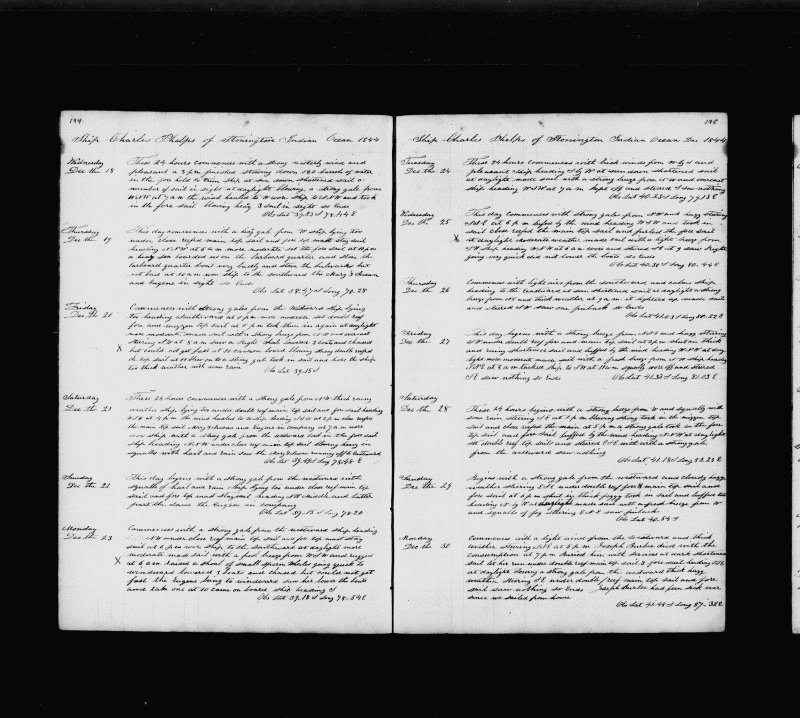 194
Ship Charles Phelps of Stonington Indian Ocean 1844
Wednesday Dec th 18
These 24 hours commences with a strong westerly wind and
pleasant at 3 p.m. finished stowing down 180 barrels of water
in the fore hold to trim ship at sun down shortened sail a
number of sail in sight at daylight blowing a strong gale from
WSW at 7 a m the wind hauled to W wore ship to NNW and took
in the fore sail blowing heavy 3 sail in sight so Ends
Obs Lat 39.23 S 78.44 E
Thursday Dec th 19
This day commences with a heavy gale from W ship lying too
under close reefed main top sail and fore top mast stay sail
heading NNW at 6 a m more moderate set the fore sail at
a heavy sea boarded us on the larboard quarter and stove the
larboard quarter boat very badly and stove the bulwarks but
not bad at 10 a m wore ship to the southward the Mary &
and Eugene in sight so Ends
Obs Lat 38.47 S Long 78.28
Friday Dec th 20
Commences with strong gales from the Westward ship lying
too heading southward at 1 p.m. more moderate set double reef
fore and mizzen top sail at 5 p.m. took them in again at daylight
more moderate made sail with a strong breeze from
steering at 8 a m saw a Right Whale lowered 2 boats and chased
X but could not get fast at 10 came on board blowing strong double reefed
the top sail at 11
too thick weather with some rain Obs Lat 39.15 S
Saturday Dec th 21
These 24 hours commences with a strong gale from NW thick rainy
weather ship lying too under double reef main top sail and fore sail heading
the main top sail Mary & Susan and Eugene in company at 7 a m wore
wore ship with a strong gale from the westward took in the fore sail
ship heading NNW under close reef main top sail blowing heavy in
squalls with hail and rain saw the Mary & Susan running off to Eastward
Obs Lat 39.44 S Long 78.48 E
Sunday Dec th 22
This day begins with a strong gale from the westward with
squalls of hail and rain ship lying too under close reef main top
sail and fore top mast staysail heading NW middle and latter
part the same the Eugene in company
Obs Lat 39.15 S Long 78.20
Monday Dec th 23
Commences with a strong gale from the westward ship heading
NW under close reef main top sail and fore top mast stay
sail at 6 p m wore ship to the southward at daylight more
moderate made sail with a fresh breeze from WSW and rugged
X at 6 a m raised a shoal of small Sperm Whales going quick to
windward lowered 3 boats and chased but could not get
fast the Eugene being to windward saw her lower the boats
and take one at 10 came on board ship heading S
Obs Lat 39.18 S Long 78.54 E
195
Ship Charles Phelps of Stonington Indian Ocean Dec 1844
Tuesday Dec th 24
These 24 hours commences with brisk winds from W by S and
pleasant ship heading S by W at sun down shortened sail
at daylight made sail with a strong breeze from NW and overcast
ship heading WSW at 7 a m kept off and steered saw nothing
Obs Lat 40.23 S Long 79.13 E
Wednesday Dec th 25
This day commences with strong gales from NW and hazy steering
SSE at 6 p m luffed by the wind heading WSW and took in
sail close reefed the main top sail and furled the fore sail
X at daylight moderate weather made sail with a light breeze from
NW Ship heading WSW at 6 a m wore and steered SE at 9 saw finbacks
going very quick did not lower the boats so Ends
Obs Lat 40.30 S Long 80.44 E
Thursday Dec th 26
Commences with light airs from the southward and calms ship
heading to the eastward at sun shortened sail at daylight a strong
breeze from NW and thick weather at 9 a m it lightens up made sail
and steered SE saw one finback so Ends
Obs Lat 41.03 S Long 80.22 E
Friday Dec th 27
This day begins with a strong breeze from NNE and hazy steering
SE under double reef fore and main top sail at 2 p m shut in thick
and rainy shortened sail and luffed by the wind heading WNW at day
light more moderate made sail with a fresh breeze from W ship heading
SSE at 8 a m tacked ship to NW at 11 a m squally wore off and steered
SE saw nothing so Ends Obs Lat 41.33 S Long 81.03 E
Saturday Dec th 28
These 24 hours begins with a strong breeze from W and squally with
some rain steering SSE at 1 p m blowing strong took in the mizzen top
sail and close reefed the main top sail at 3 p m a strong gale took in the fore
top sail and fore sail luffed by the wind heading NNW at daylight
set double reef top sail and steered SE with with a strong gale
from the westward saw nothing
Obs Lat 41.18 S Long 83.23 E
Sunday Dec th 29
Begins with a strong gale from the westward and cloudy hazy
weather steering ESE under double reef fore & main top sail and
fore sail at 6 p m shut in thick foggy took in sail and luffed too
heading N by W at daylight made sail with a fresh breeze from W
and squalls of fog steering ESE saw finback
Obs Lat 40.54 S
Monday Dec th 30
Commences with a light wind from the Westward and thick
weather steering SSE at 5 p m Joseph Burbie died with the
Consumption at 7 p m buried him with services at dark shortened
sail let her run under double reef main top sail & fore sail heading ESE
at daylight blowing a strong gale from the westward thick hazy
weather steering SE under double reef main top sail and fore
sail saw nothing so Ends Joseph Burbie had been sick ever
since we sailed from home
Obs Lat 41.48 S Long 87.32 E